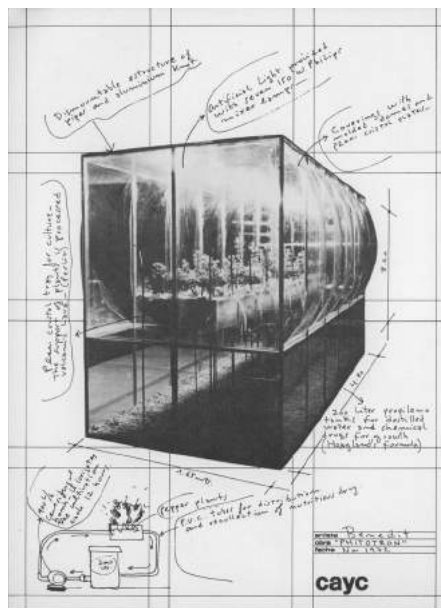 Dismountable estructure of
Pipes and aluminium Knot
Artificial Light provided
with seven 150 W Philips
mixer lamps
Coverings with
molded domes and
plexi cristal plates
Plexi cristal trays for culture-
The support of plants is processed
volcanic lava (Perlite)
4.80
200 liter propilene
tanks for destilled
water and chemical
drugs for growth
(Hoagland's formula)
Pepper plants
P.V.C. tubes for distribution
and recollection of nutritious drug
each 12 hours
artista Benedit
obra "PHITOTRON"
fecha Nov 1972
cayc